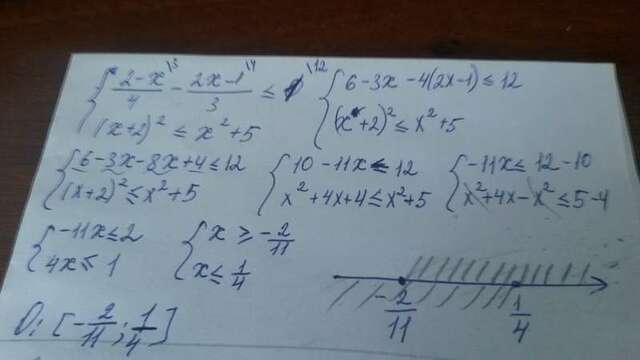 { (2-x)/4 \3 - (2x-1)/3 \4 ≤ 1 \12
(x+2)² ≤ x²+5
{ 6-3x-4(2x-1) ≤ 12
(x+2)² ≤ x²+5
{ 6-3x-8x+4 ≤ 12
(x+2)² ≤ x²+5
{ 10-11x ≤ 12
x²+4x+4 ≤ x²+5
{ -11x ≤ 12-10
x²+4x-x² ≤ 5-4
{ -11x ≤ 2
4x ≤ 1
{ x ≥ -2/11
x ≤ 1/4
-2/11 1/4
О: [-2/11; 1/4]